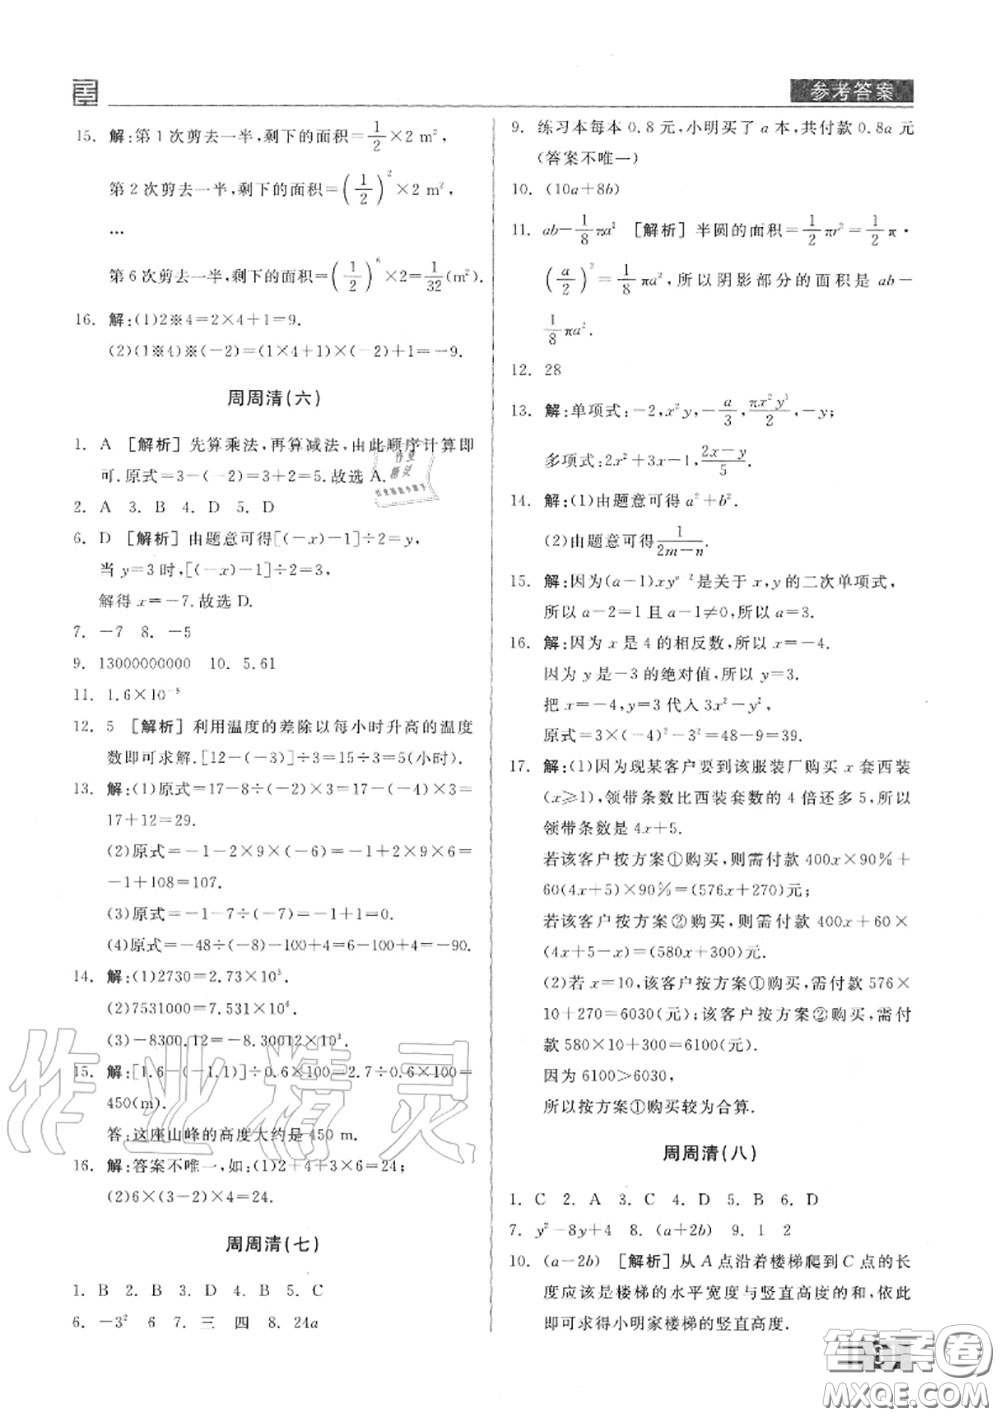 参考答案
15. 解:第1次剪去一半,剩下的面积=1/2×2 m²,
第2次剪去一半,剩下的面积=(1/2)²×2 m²,
…
第6次剪去一半,剩下的面积=(1/2)⁶×2=1/32(m²).
16. 解:(1)2※4=2×4+1=9.
(2)(1※4)※(-2)=(1×4+1)×(-2)+1=-9.
周周清(六)
1. A [解析] 先算乘法,再算减法,由此顺序计算即
可.原式=3-(-2)=3+2=5.故选A.
2. A 3. B 4. D 5. D
6. D [解析] 由题意可得[(-x)-1]÷2=y,
当y=3时,[(-x)-1]÷2=3,
解得x=-7.故选D.
7. -7 8. -5
9. 13000000000 10. 5.61
11. 1.6×10⁻⁸
12. 5 [解析] 利用温度的差除以每小时升高的温度
数即可求解.[12-(-3)]÷3=15÷3=5(小时).
13. 解:(1)原式=17-8÷(-2)×3=17-(-4)×3=
17+12=29.
(2)原式=-1-2×9×(-6)=-1+2×9×6=
-1+108=107.
(3)原式=-1-7÷(-7)=-1+1=0.
(4)原式=-48÷(-8)-100+4=6-100+4=-90.
14. 解:(1)2730=2.73×10³.
(2)7531000=7.531×10⁶.
(3)-8300.12=-8.30012×10³.
15. 解:[1.6-(-1.1)]÷0.6×100=2.7÷0.6×100=
450(m).
答:这座山峰的高度大约是450 m.
16. 解:答案不唯一,如:(1)2+4+3×6=24;
(2)6×(3-2)×4=24.
周周清(七)
1. B 2. B 3. D 4. B 5. C
6. -3² 6 7. 三 四 8. 24a
9. 练习本每本0.8元,小明买了a本,共付款0.8a元
(答案不唯一)
10. (10a+8b)
11. ab-1/8πa² [解析] 半圆的面积=1/2πr²=1/2π·
(a/2)²=1/8πa²,所以阴影部分的面积是ab-
1/8πa².
12. 28
13. 解:单项式:-2,x²y,-a/3,πx²y³/2,-y;
多项式:2x²+3x-1,(2x-y)/5.
14. 解:(1)由题意可得a²+b².
(2)由题意可得1/(2m-n).
15. 解:因为(a-1)xyᵃ⁻²是关于x,y的二次单项式,
所以a-2=1且a-1≠0,所以a=3.
16. 解:因为x是4的相反数,所以x=-4.
因为y是-3的绝对值,所以y=3.
把x=-4,y=3代入3x²-y²,
原式=3×(-4)²-3²=48-9=39.
17. 解:(1)因为现某客户要到该服装厂购买x套西装
(x≥1),领带条数比西装套数的4倍还多5,所以
领带条数是4x+5.
若该客户按方案①购买,则需付款400x×90%+
60(4x+5)×90%=(576x+270)元;
若该客户按方案②购买,则需付款400x+60×
(4x+5-x)=(580x+300)元;
(2)若x=10,该客户按方案①购买,需付款576×
10+270=6030(元);该客户按方案②购买,需付
款580×10+300=6100(元).
因为6100>6030,
所以按方案①购买较为合算.
周周清(八)
1. C 2. A 3. C 4. D 5. B 6. D
7. y²-8y+4 8. (a+2b) 9. 1 2
10. (a-2b) [解析] 从A点沿着楼梯爬到C点的长
度应该是楼梯的水平宽度与竖直高度的和,依此
即可求得小明家楼梯的竖直高度.
作业精灵
答案圈
MXQE.COM